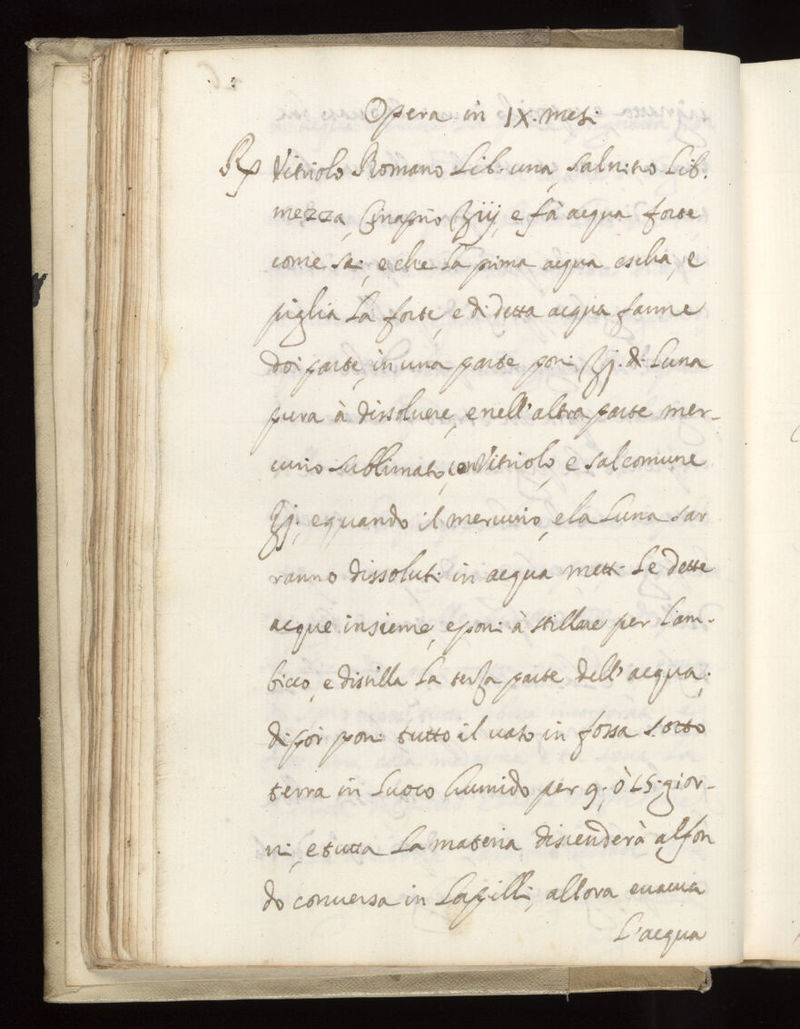 Opera in IX. mesi
Rp Vitriolo Romano Lib. una, salnitro Lib.
mezza, Cinaprio ℥iij, e fà acqua forte
come sai, e che La prima acqua escha, e
piglia La forte, e di detta acqua fanne
doi parte, in una parte poni ℥j. di Luna
pura à dissoluere, e nell'altra parte mer-
curio sublimato, con Vitriolo, e sal comune
℥j., e quando il mercurio, e la Luna sar
ranno dissoluti in acqua metti Le dette
acque insieme, e poni à stillare per Lam-
bicco, e distilla La terza parte dell'acqua;
di poi poni tutto il uaso in fossa sotto
terra in Luoco humido per 9, ò 15. gior-
ni, e tutta La materia discenderà al fon
do conuersa in Lapilli, allora euacua
L'acqua